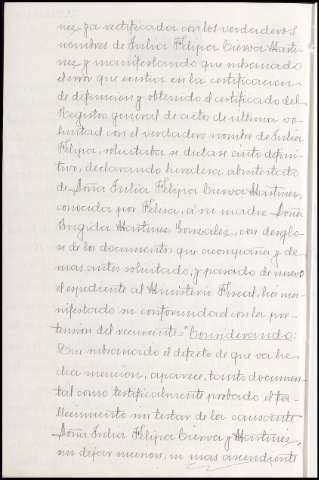 nez ya rectificada con los verdaderos
nombres de Julia Felipa Cueva Martí-
nez y manifestando que subsanado
el error que existía en la certificacion
de defuncion y obtenido el certificado del
Registro general de actos de ultima vo-
luntad con el verdadero nombre de Julia
Felipa, solicitaba se dictase auto defini-
tivo, declarando heredera abintestato
de Doña Julia Felipa Cueva Martinez,
conocida por Felisa, á su madre Doña
Brigida Martinez Gonzalez, con desglo-
se de los documentos que acompaña y de-
mas antes solicitado, y pasado de nuevo
el expediente al Ministerio Fiscal, ha ma-
nifestado su conformidad con la pre-
tension del recurrente." Considerando:
Que subsanado el defecto de que va he-
cha mencion, aparece, tanto documen-
tal como testificalmente probado el fa-
llecimiento sin testar de la causante
Doña Julia Felipa Cueva y Martinez,
sin dejar menos, ni mas ascendiente